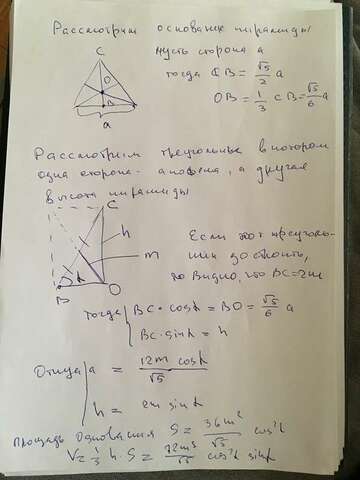 Рассмотрим основание пирамиды
пусть сторона a
C
тогда CB = √5/2 a
O
OB = 1/3 CB = √5/6 a
B
a
Рассмотрим треугольник в котором
одна сторона - апофема, а другая
высота пирамиды
C
h
Если этот треуголь-
m
ник достроить,
то видно, что BC = 2m
B
O
тогда BC · cosα = BO = √5/6 a
BC · sinα = h
Отсюда a = 12m cosα/√5
h = 2m sinα
площадь основания S = 36m²/√5 cos²α
V = 1/3 h · S = 72m³/√5 cos²α sinα